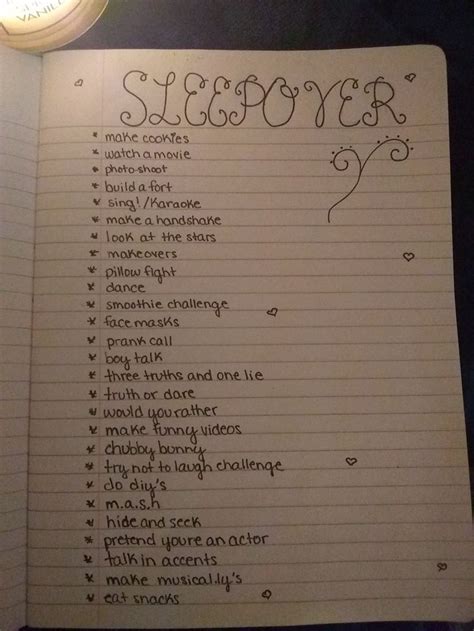 VANIL
SLEEPOVER
* make cookies
* watch a movie
* photo-shoot
* build a fort
* sing!/Karaoke
* make a handshake
* look at the stars
* makeovers
* pillow fight
* dance
* smoothie challenge
* face masks
* prank call
* boy talk
* three truths and one lie
* truth or dare
* would you rather
* make funny videos
* chubby bunny
* try not to laugh challenge
* do diy's
* m.a.s.h
* hide and seek
* pretend youre an actor
* talk in accents
* make musical.ly's
* eat snacks